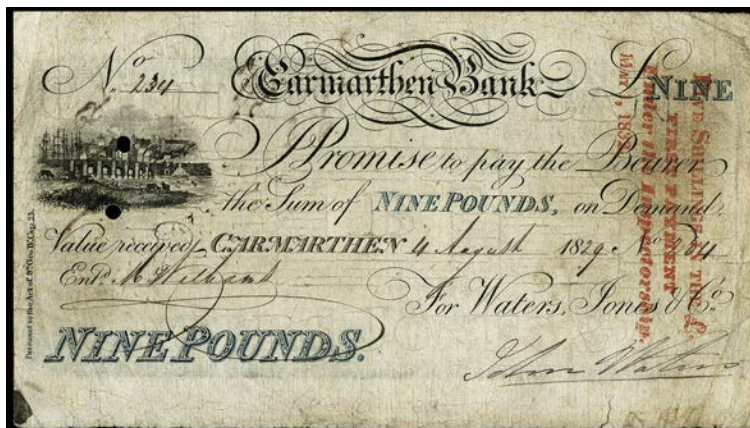 No. 234 Carmarthen Bank £NINE
I Promise to pay the Bearer
the Sum of NINE POUNDS, on Demand
Value received CARMARTHEN 4 August 1829 No 234
Entd. M Williams
For Waters, Jones & Co.
NINE POUNDS. John Waters
Pursuant to the Act of 9th Geo. IV. Cap. 23.
FIVE SHILLINGS IN THE £.
FIRST PAYMENT
Under the Inspectorship,